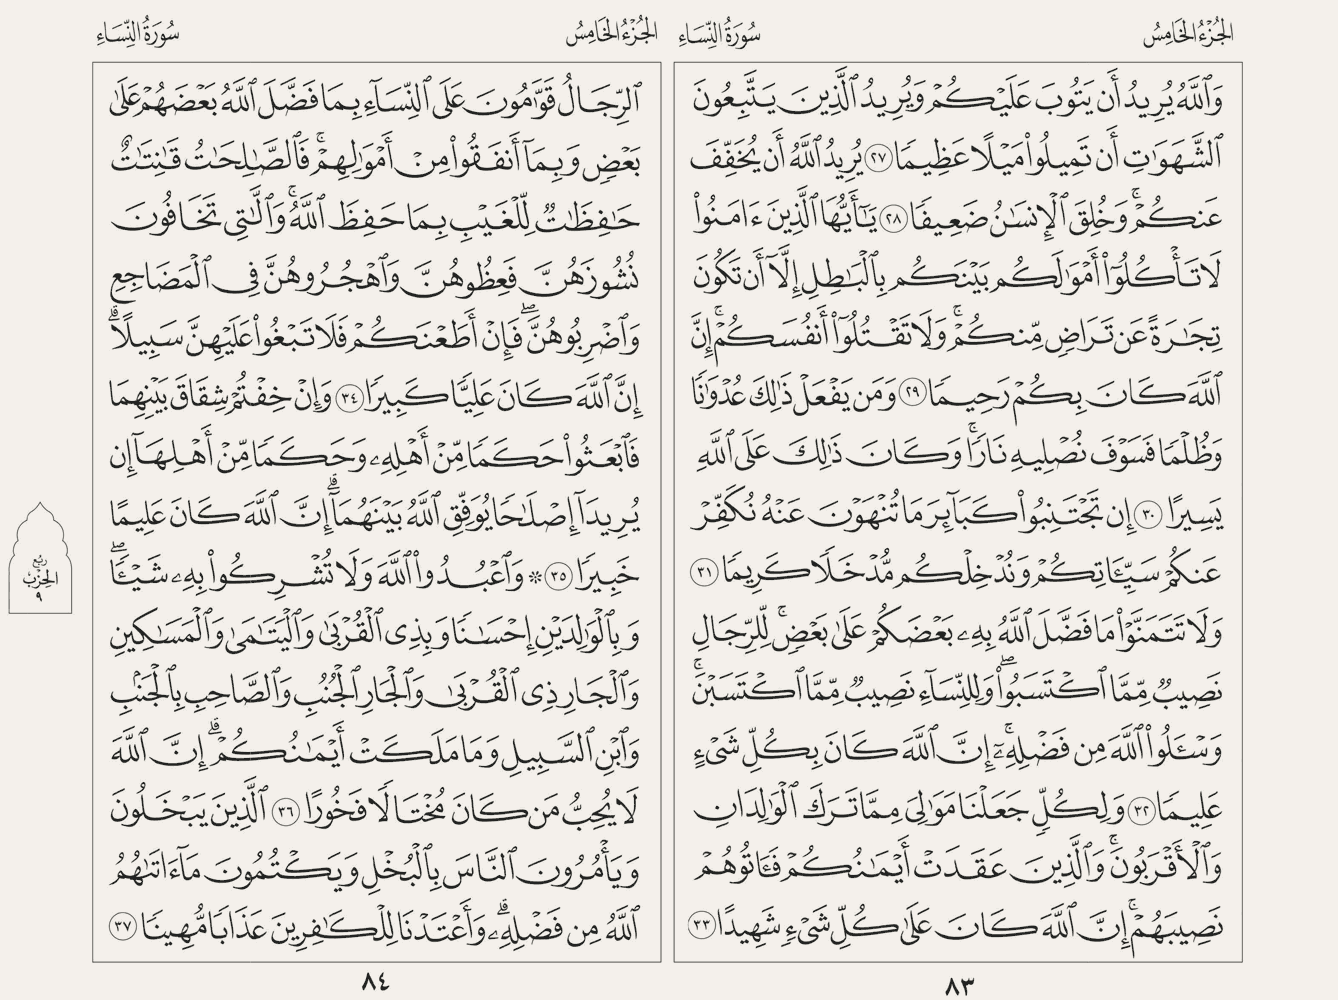 الجُزْءُ الخَامِسُ
سُورَةُ النِّسَاءِ
وَٱللَّهُ يُرِيدُ أَن يَتُوبَ عَلَيْكُمْ وَيُرِيدُ ٱلَّذِينَ يَتَّبِعُونَ
ٱلشَّهَوَٰتِ أَن تَمِيلُوا۟ مَيْلًا عَظِيمًا ٢٧ يُرِيدُ ٱللَّهُ أَن يُخَفِّفَ
عَنكُمْ ۚ وَخُلِقَ ٱلْإِنسَـٰنُ ضَعِيفًا ٢٨ يَـٰٓأَيُّهَا ٱلَّذِينَ ءَامَنُوا۟
لَا تَأْكُلُوٓا۟ أَمْوَٰلَكُم بَيْنَكُم بِٱلْبَـٰطِلِ إِلَّآ أَن تَكُونَ
تِجَـٰرَةً عَن تَرَاضٍ مِّنكُمْ ۚ وَلَا تَقْتُلُوٓا۟ أَنفُسَكُمْ ۚ إِنَّ
ٱللَّهَ كَانَ بِكُمْ رَحِيمًا ٢٩ وَمَن يَفْعَلْ ذَٰلِكَ عُدْوَٰنًا
وَظُلْمًا فَسَوْفَ نُصْلِيهِ نَارًا ۚ وَكَانَ ذَٰلِكَ عَلَى ٱللَّهِ
يَسِيرًا ٣٠ إِن تَجْتَنِبُوا۟ كَبَآئِرَ مَا تُنْهَوْنَ عَنْهُ نُكَفِّرْ
عَنكُمْ سَيِّـَٔاتِكُمْ وَنُدْخِلْكُم مُّدْخَلًا كَرِيمًا ٣١
وَلَا تَتَمَنَّوْا۟ مَا فَضَّلَ ٱللَّهُ بِهِۦ بَعْضَكُمْ عَلَىٰ بَعْضٍ ۚ لِّلرِّجَالِ
نَصِيبٌ مِّمَّا ٱكْتَسَبُوا۟ ۖ وَلِلنِّسَآءِ نَصِيبٌ مِّمَّا ٱكْتَسَبْنَ ۚ
وَسْـَٔلُوا۟ ٱللَّهَ مِن فَضْلِهِۦٓ ۚ إِنَّ ٱللَّهَ كَانَ بِكُلِّ شَىْءٍ
عَلِيمًا ٣٢ وَلِكُلٍّ جَعَلْنَا مَوَٰلِىَ مِمَّا تَرَكَ ٱلْوَٰلِدَانِ
وَٱلْأَقْرَبُونَ ۚ وَٱلَّذِينَ عَقَدَتْ أَيْمَـٰنُكُمْ فَـَٔاتُوهُمْ
نَصِيبَهُمْ ۚ إِنَّ ٱللَّهَ كَانَ عَلَىٰ كُلِّ شَىْءٍ شَهِيدًا ٣٣
٨٣
الجُزْءُ الخَامِسُ
سُورَةُ النِّسَاءِ
ٱلرِّجَالُ قَوَّٰمُونَ عَلَى ٱلنِّسَآءِ بِمَا فَضَّلَ ٱللَّهُ بَعْضَهُمْ عَلَىٰ
بَعْضٍ وَبِمَآ أَنفَقُوا۟ مِنْ أَمْوَٰلِهِمْ ۚ فَٱلصَّـٰلِحَـٰتُ قَـٰنِتَـٰتٌ
حَـٰفِظَـٰتٌ لِّلْغَيْبِ بِمَا حَفِظَ ٱللَّهُ ۚ وَٱلَّـٰتِى تَخَافُونَ
نُشُوزَهُنَّ فَعِظُوهُنَّ وَٱهْجُرُوهُنَّ فِى ٱلْمَضَاجِعِ
وَٱضْرِبُوهُنَّ ۖ فَإِنْ أَطَعْنَكُمْ فَلَا تَبْغُوا۟ عَلَيْهِنَّ سَبِيلًا ۗ
إِنَّ ٱللَّهَ كَانَ عَلِيًّا كَبِيرًا ٣٤ وَإِنْ خِفْتُمْ شِقَاقَ بَيْنِهِمَا
فَٱبْعَثُوا۟ حَكَمًا مِّنْ أَهْلِهِۦ وَحَكَمًا مِّنْ أَهْلِهَآ إِن
يُرِيدَآ إِصْلَـٰحًا يُوَفِّقِ ٱللَّهُ بَيْنَهُمَآ ۗ إِنَّ ٱللَّهَ كَانَ عَلِيمًا
خَبِيرًا ٣٥ ۞ وَٱعْبُدُوا۟ ٱللَّهَ وَلَا تُشْرِكُوا۟ بِهِۦ شَيْـًٔا ۖ
وَبِٱلْوَٰلِدَيْنِ إِحْسَـٰنًا وَبِذِى ٱلْقُرْبَىٰ وَٱلْيَتَـٰمَىٰ وَٱلْمَسَـٰكِينِ
وَٱلْجَارِ ذِى ٱلْقُرْبَىٰ وَٱلْجَارِ ٱلْجُنُبِ وَٱلصَّاحِبِ بِٱلْجَنۢبِ
وَٱبْنِ ٱلسَّبِيلِ وَمَا مَلَكَتْ أَيْمَـٰنُكُمْ ۗ إِنَّ ٱللَّهَ
لَا يُحِبُّ مَن كَانَ مُخْتَالًا فَخُورًا ٣٦ ٱلَّذِينَ يَبْخَلُونَ
وَيَأْمُرُونَ ٱلنَّاسَ بِٱلْبُخْلِ وَيَكْتُمُونَ مَآ ءَاتَىٰهُمُ
ٱللَّهُ مِن فَضْلِهِۦ ۗ وَأَعْتَدْنَا لِلْكَـٰفِرِينَ عَذَابًا مُّهِينًا ٣٧
رُبْعُ
الحِزْبِ
٩
٨٤